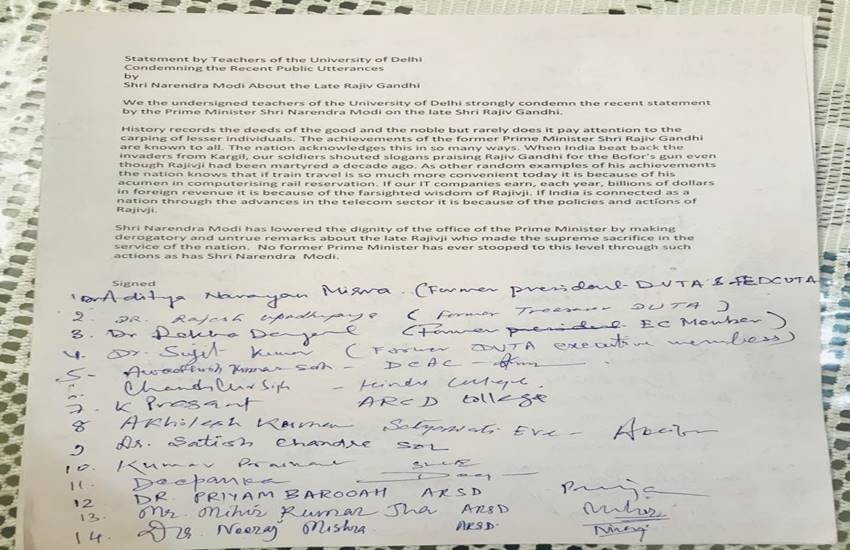 Statement by Teachers of the University of Delhi
Condemning the Recent Public Utterances
by
Shri Narendra Modi About the Late Rajiv Gandhi
We the undersigned teachers of the University of Delhi strongly condemn the recent statement
by the Prime Minister Shri Narendra Modi on the late Shri Rajiv Gandhi.
History records the deeds of the good and the noble but rarely does it pay attention to the
carping of lesser individuals. The achievements of the former Prime Minister Shri Rajiv Gandhi
are known to all. The nation acknowledges this in so many ways. When India beat back the
invaders from Kargil, our soldiers shouted slogans praising Rajiv Gandhi for the Bofor's gun even
though Rajivji had been martyred a decade ago. As other random examples of his achievements
the nation knows that if train travel is so much more convenient today it is because of his
acumen in computerising rail reservation. If our IT companies earn, each year, billions of dollars
in foreign revenue it is because of the farsighted wisdom of Rajivji. If India is connected as a
nation through the advances in the telecom sector it is because of the policies and actions of
Rajivji.
Shri Narendra Modi has lowered the dignity of the office of the Prime Minister by making
derogatory and untrue remarks about the late Rajivji who made the supreme sacrifice in the
service of the nation. No former Prime Minister has ever stooped to this level through such
actions as has Shri Narendra Modi.
Signed
1. Dr Aditya Narayan Misra (Former president DUTA & FEDCUTA
2. DR. Rajesh Upadhyaya (Former Treasurer DUTA)
3. Dr (Former president EC Member)
4. Dr. Sujit Kumar (Former DUTA executive members)
5- Awadhesh Kumar - DCAC
- Hindu College.
7. K Prasant ARSD College
8 Akhilesh Kumar Satyawati Eve -
9 Dr. Satish Chandre SOL
10. Kumar
11. Deepanka
12 DR. PRIYAM BAROOAH ARSD
13. Mr. Mihir Kumar Jha ARSD Mihir
14. Drs. Neeraj Mishra ARSD. Neeraj